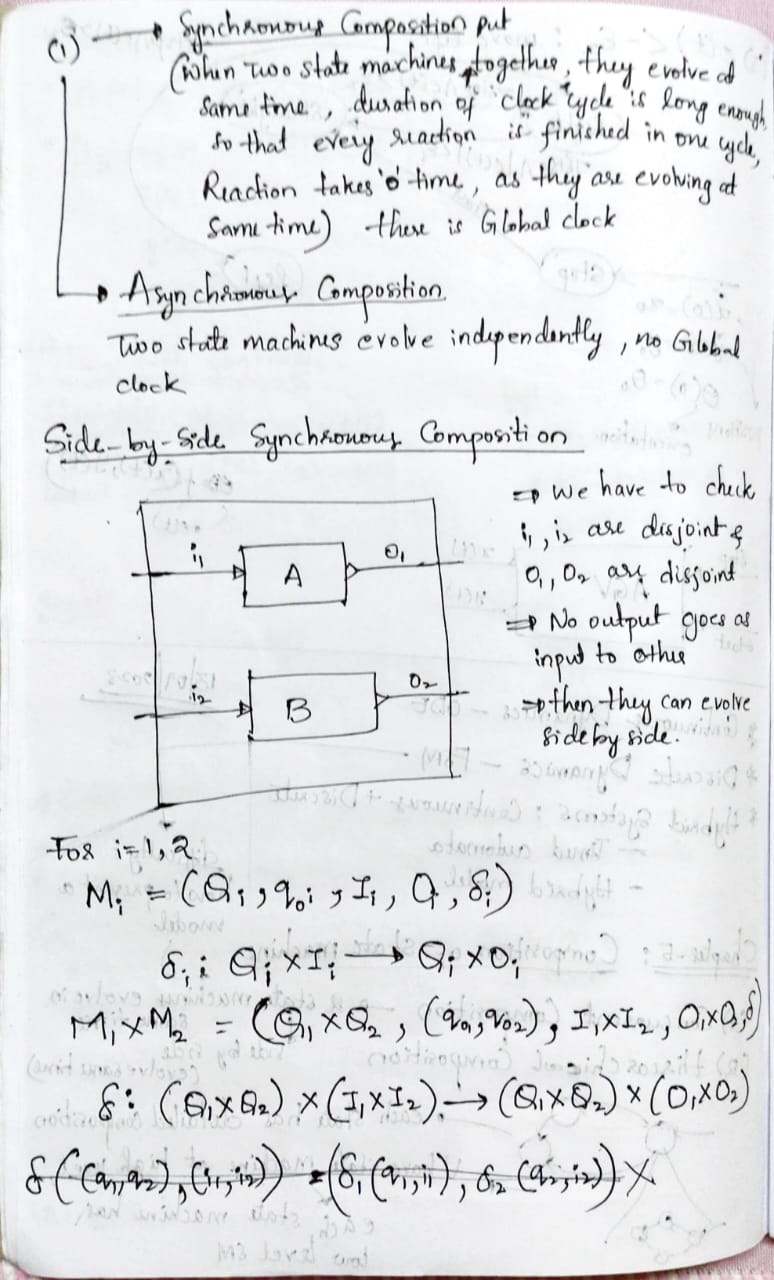 (1) → Synchronous Composition put
(when Two state machines together, they evolve at
same time, duration of clock cycle is long enough
so that every reaction is finished in one cycle,
Reaction takes 'o' time, as they are evolving at
same time) there is Global clock
→ Asynchronous Composition
Two state machines evolve independently, no Global
clock
Side-by-Side Synchronous Composition
i₁ A O₁
i₂ B O₂
⇒ we have to check
i₁, i₂ are disjoint &
O₁, O₂ are disjoint
⇒ No output goes as
input to other
⇒ then they can evolve
side by side.
For i=1,2
Mᵢ = (Qᵢ, q₀ᵢ, Iᵢ, O, δᵢ)
δᵢ: Qᵢ × Iᵢ → Qᵢ × Oᵢ
M₁ × M₂ = (Q₁ × Q₂, (q₀₁, q₀₂), I₁×I₂, O₁×O₂, δ)
δ: (Q₁×Q₂) × (I₁×I₂) → (Q₁×Q₂) × (O₁×O₂)
δ((q₁,q₂), (i₁,i₂)) = (δ₁(q₁,i₁), δ₂(q₂,i₂)) X